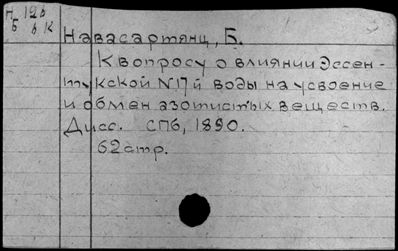 П 126
Б б К
Навасартянц, Б.
К вопросу о влиянии Эссен-
тукской N17й воды на усвоение
и обмен азотистых веществ.
Дисс. СПб, 1890.
62стр.